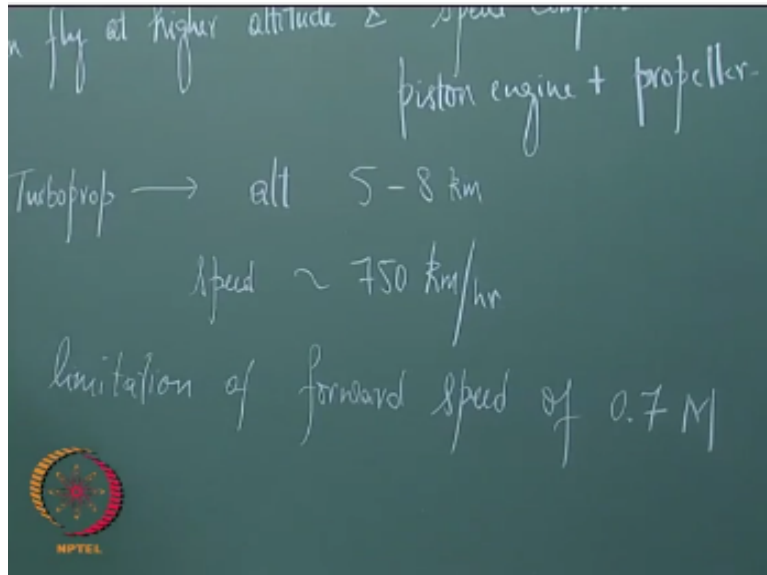 n fly at higher altitude & speed
piston engine + propeller-
Turboprop → alt 5 - 8 km
speed ~ 750 km/hr
limitation of forward speed of 0.7 M
NPTEL